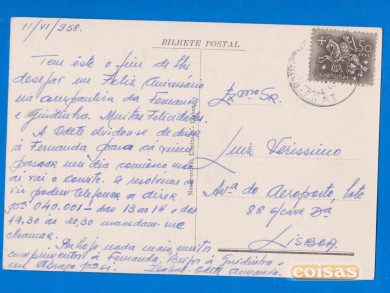 11/VI/958.
BILHETE POSTAL
Tem este o fim de lhe
desejar um Feliz Aniversário
na companhia da Fernanda
e Guidinha. Muitas Felicidades.
A Odete
à Fernanda para cá vir
passar um dia connosco
aí vai o convite. Se resolverem
vir podem telefonar a dizer
040.001 - das 13 às 14, e das
19,30 às 20,30 mandem-me
chamar.
Por hoje nada mais, muitos
cumprimentos à Fernanda. Beijos à Guidinha
um abraço
Isabel, Odete
50
PORTUGAL
Exmo Sr.
Luiz Veríssimo
Av.ª do Aeroporto, Lote
88
LISBOA
coisas